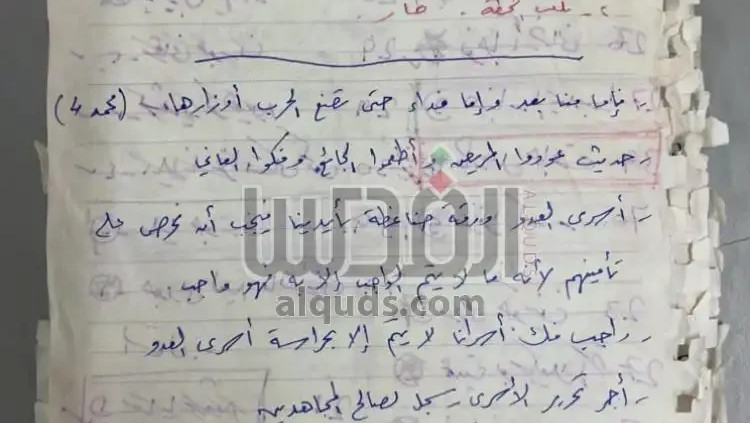 فإما منا بعد وإما فداء حتى تضع الحرب أوزارها.. (محمد 4)
- حديث عودوا المريض وأطعموا الجائع وفكوا العاني
- أسرى العدو ورقة ضاغطة بأيدينا فيجب أن نحرص على
القدس
ALQUDS
تأمينهم لأنه ما لا يتم الواجب إلا به فهو واجب
alquds.com
- واجب فك أسرانا لا يتم إلا بحراسة أسرى العدو
- أجر تحرير الأسرى يسجل لصالح المجاهدين